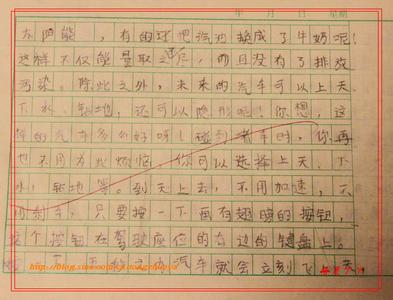 年 月 日 星期
太阳能，有的还把汽油换成了牛奶呢！
这样不仅能量取之不尽，而且没有了排放
污染。除此之外，未来的汽车可以上天、
下水、钻地，还可以隐形呢！你想，这
样的汽车多么好呀！碰到堵车时，你再
也不用为此烦恼，你可以选择上天、下
水、钻地等。到天上去，不用加速，不
用刹车，只要按一下画有翅膀的按钮，
这个按钮在驾驶座位的右边的键盘上。
汽车就会立刻飞